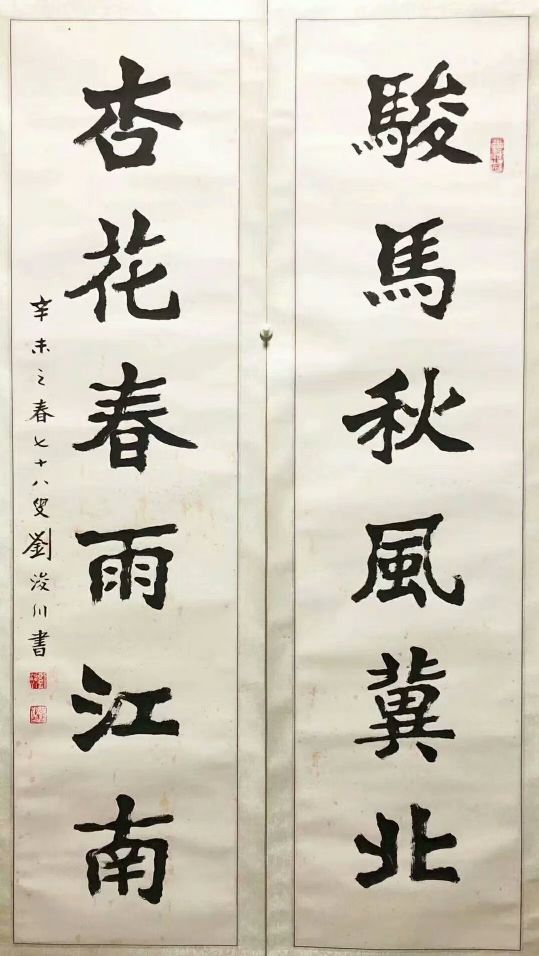 駿馬秋風冀北
杏花春雨江南
辛未之春七十八叟劉浚川書